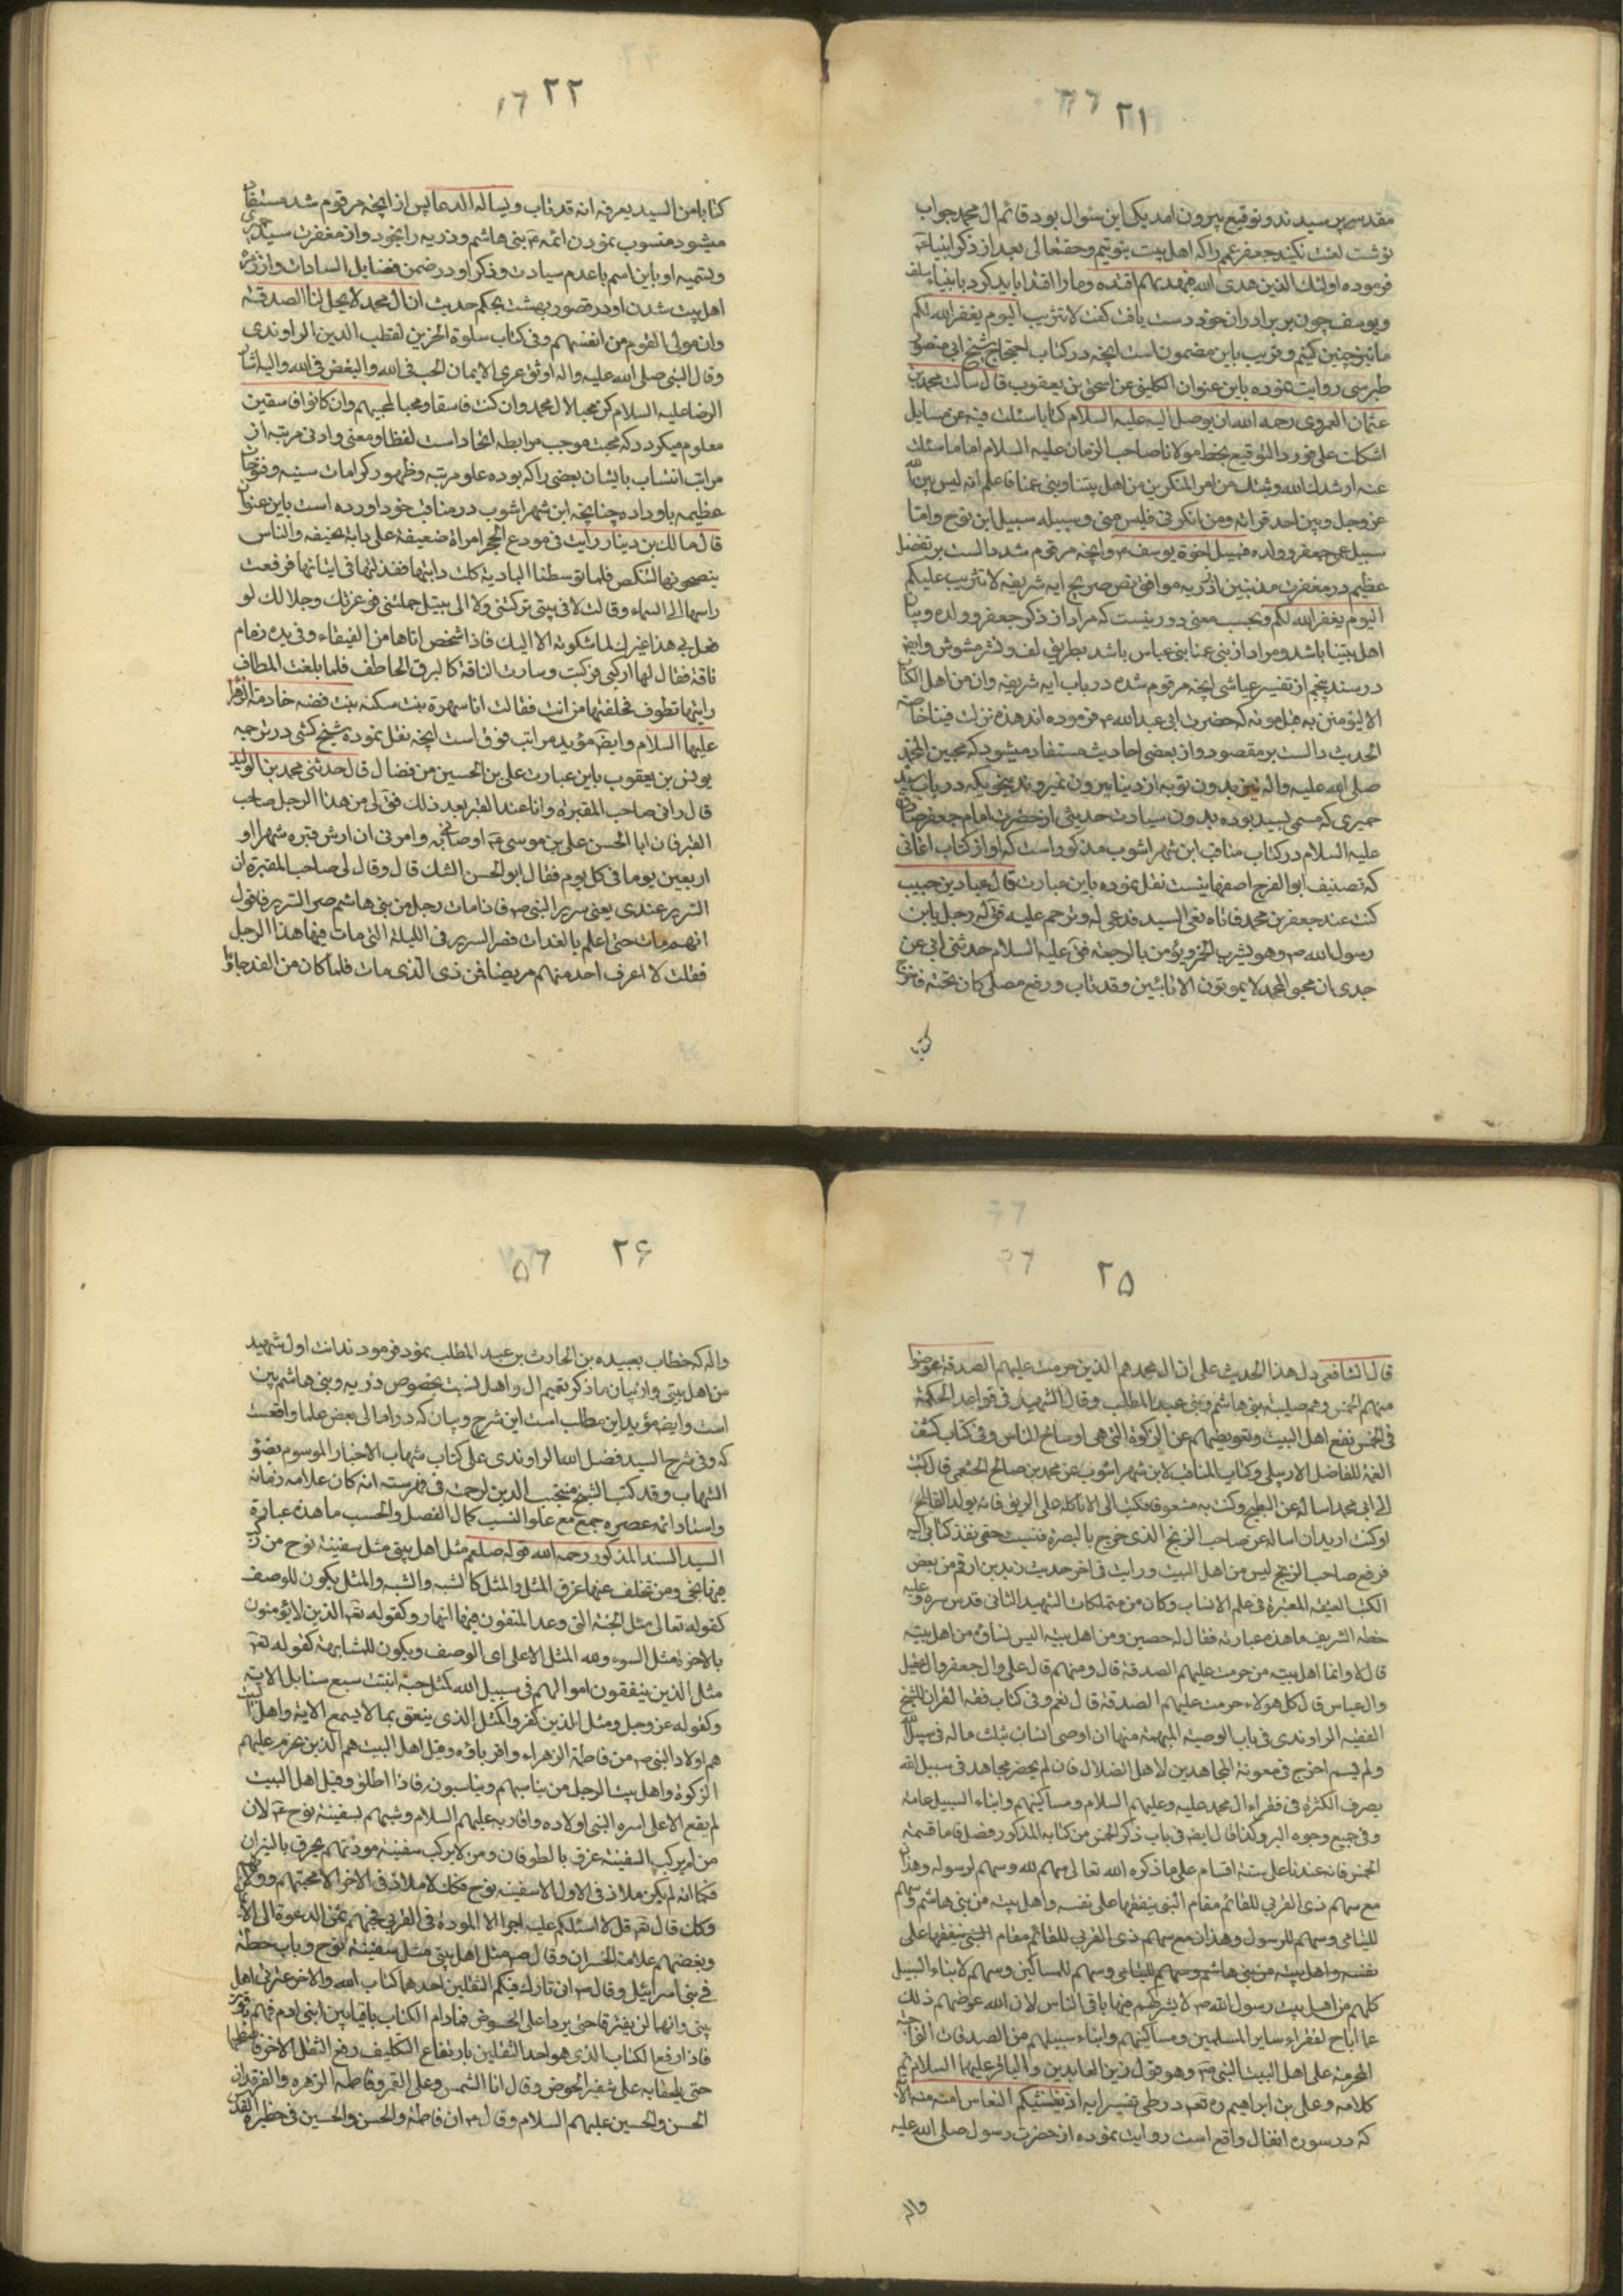 ۲۱
مقدس پرسیدند و توقیع بیرون امد یکی این سئوال بود قائم ال محمد جواب
نوشت لعنت نکنید جعفر عمم را که اهل بیت بنوتیم و حقتعالی بعد از ذکر انبیاء
فرموده اولئک الذین هدی الله فبهدیهم اقتده و ما را اقتدا باید کرد بانبیاء سلف
و یوسف چون بر برادران خود دست یافت گفت لا تثریب الیوم یغفر الله لکم
ما نیز چنین کنیم و قریب باین مضمون است انچه در کتاب احتجاج شیخ ابی منصور
طبرسی روایت نموده باین عنوان الکلینی عن اسحق بن یعقوب قال سالت محمد بن
عثمان العمروی رحمه الله ان یوصل الیه علیه السلام کتابا سئلت فیه عن مسایل
اشکلت علی فورد التوقیع بخط مولانا صاحب الزمان علیه السلام اما ما سئلت
عنه ارشدک الله و ثبتک من امر المنکرین من اهل بیتنا و بنی عمنا فاعلم انه لیس بین الله
عز و جل و بین احد قرابة و من انکرنی فلیس منی و سبیله سبیل ابن نوح و اما
سبیل عمی جعفر و ولده فسبیل اخوة یوسف و انچه مرقوم شد دالست بر تفضل
عظیم در مغفرت مذنبین از ذریه موافق نص صریح ایه شریفه لا تثریب علیکم
الیوم یغفر الله لکم و بحسب معنی دور نیست که مراد از ذکر جعفر و ولده و بیان
اهل بیتنا باشد و مراد از بنی عمنا بنی عباس باشد بطریق لف و نشر مشوش و ایضا
در سند پنجم از تفسیر عیاشی انچه مرقوم شده در باب ایه شریفه و ان من اهل الکتاب
الا لیؤمنن به قبل موته که حضرت ابی عبد الله فرموده اند هذه نزلت فینا خاصة
الحدیث دالست بر مقصود و از بعضی احادیث مستفاد میشود که محبین محمد
صلی الله علیه و اله نیز بدون توبه از دنیا بیرون نمیروند بنحویکه در باب سید
حمیری که مسمی بسید بوده بدون سیادت حدیثی از حضرت امام جعفر صادق
علیه السلام در کتاب مناقب ابن شهراشوب مذکور است که او از کتاب اغانی
که تصنیف ابو الفرج اصفهانیست نقل نموده باین عبارت قال عباد بن حبیب
کنت عند جعفر بن محمد فاتاه نعی السید فدعی له و ترحم علیه فق له رجل یا بن
رسول الله و هو یشرب الخمر و یؤمن بالرجعة فق علیه السلام حدثنی ابی عن
جدی ان محبی ال محمد لا یموتون الا تائبین و قد تاب و رفع مصلی کان تحته فاخرج
۲۲
کتابا من السید یعرفه انه قد تاب و یساله الدعا پس از انچه مرقوم شد مستفاد
میشود منسوب نمودن ائمه بنی هاشم و ذریه را بخود و از مغفرت سید حمیری
و تسمیه او باین اسم با عدم سیادت و ذکر او در ضمن فضایل السادات و از زمره
اهل بیت شدن او در قصور بهشت بحکم حدیث ان ال محمد لا یحل لنا الصدقة
و ان مولی القوم من انفسهم و فی کتاب سلوة الحزین لقطب الدین الراوندی
و قال النبی صلی الله علیه و اله اوثق عری الایمان الحب فی الله و البغض فی الله و الیه اشار
الرضا علیه السلام کن محبا لال محمد و ان کنت فاسقا و محبا لمحبیهم و ان کانوا فاسقین
معلوم میکردد که محبت موجب مرابطه اتحاد است لفظا و معنی و ادنی مرتبه از
مراتب انتساب بایشان بعضی را که بوده علو مرتبه و ظهور کرامات سنیه و فتوحات
عظیمه باو داده چنانچه ابن شهراشوب در مناقب خود اورده است باین عنوان
قال مالک بن دینار رایت فی مودع الحج امراة ضعیفة علی دابة نحیفه و الناس
ینصحونها لتنکص فلما توسطنا البادیة کلت دابتها فعذلتها فی اتیانها فرفعت
راسها الی السماء و قالت لا فی بیتی ترکتنی و لا الی بیتک حملتنی فو عزتک و جلالک لو
فعل بی هذا غیرک لما شکوته الا الیک فاذا شخص اتاها من الفیفاء و فی یده زمام
ناقة فقال لها ارکبی فرکبت و سارت الناقة کالبرق الخاطف فلما بلغت المطاف
رایتها تطوف فحلفتها من انت فقالت انا شهرة بنت مسکة بنت فضه خادمة الزهرا
علیها السلام و ایضا مؤید مراتب فوق است انچه نقل نموده شیخ کشی در ترجمه
یونس بن یعقوب باین عبارت علی بن الحسین من فضال قال حدثنی محمد بن الولید
قال رانی صاحب المقبرة و انا عند القبر بعد ذلک فق لی من هذا الرجل صاحب
القبر فان ابا الحسن علی بن موسی اوصانی به و امرنی ان ارش قبره شهرا او
اربعین یوما فی کل یوم فقال ابو الحسن الشک قال و قال لی صاحب المقبرة ان
السریر عندی یعنی سریر النبی فاذا مات رجل من بنی هاشم صر السریر فاقول
ایهم مات حتی اعلم بالغداة فصر السریر فی اللیلة التی مات فیها هذا الرجل
فقلت لا اعرف احد منهم مریضا فمن ذی الذی مات فلما کان من الغد جاؤا
۲۵
قال الشافعی دل هذا الحدیث علی ان ال محمد هم الذین حرمت علیهم الصدقة و عوضوا
منهم الخمس و هم صلیبة بنی هاشم و بنی عبد المطلب و قال الشهید فی قواعد الحکمة
فی الخمس نفع اهل البیت و تعویضهم عن الزکوة التی هی اوساخ الناس و فی کتاب کشف
الغمة للفاضل الاربلی و کتاب المناقب لابن شهراشوب عن محمد بن صالح الخثعمی قال کتبت
الی ابی محمد اساله عن البطیخ و کنت به مشعوفا فکتب الی لا تاکله علی الریق فانه یولد الفالج
و کنت ارید ان اساله عن صاحب الزنج الذی خرج بالبصرة فنسیت حتی نفذ کتابی الیه
فوقع صاحب الزنج لیس من اهل البیت و رایت فی اخر حدیث زید بن ارقم من بعض
الکتب العتیقة المعتبرة فی علم الانساب و کان من متملکات الشهید الثانی قدس سره و علیه
خطه الشریف ما هذه عبارته فقال له حصین و من اهل بیته الیس نساؤه من اهل بیته
قال لا و انما اهل بیته من حرمت علیهم الصدقة قال و منهم قال علی و ال جعفر و ال عقیل
و ال عباس قال کل هولاء حرمت علیهم الصدقة قال نعم و فی کتاب فقه القران للشیخ
الفقیه الراوندی فی باب الوصیة المبهمة منها ان اوصی انسان بثلث ماله فی سبیل الله
و لم یسم اخرج فی معونة المجاهدین لاهل الضلال فان لم یحضر مجاهد فی سبیل الله
یصرف اکثره فی فقراء ال محمد علیه و علیهم السلام و مساکینهم و ابناء السبیل عامة
و فی جمیع وجوه البر و کذا قال ایضا فی باب ذکر الخمس من کتابه المذکور فصل فاما قسمة
الخمس فانه عندنا علی ستة اقسام علی ما ذکره الله تعالی سهم لله و سهم لرسوله و هذان
مع سهم ذی القربی للقائم مقام النبی ینفقها علی نفسه و اهل بیته من بنی هاشم و سهم
للیتامی و سهم للرسول و هذان مع سهم ذی القربی للقائم مقام النبی ینفقها علی
نفسه و اهل بیته من بنی هاشم و سهم للیتامی و سهم للمساکین و سهم لابناء السبیل
کلهم من اهل بیت رسول الله لا یشرکهم فیها باقی الناس لان الله عوضهم ذلک
عما اباح لفقراء سایر المسلمین و مساکینهم و ابناء سبیلهم من الصدقات الواجبة
المحرمة علی اهل البیت النبی و هو قول زین العابدین و الباقر علیهما السلام تم
کلامه و علی بن ابراهیم در طی تفسیر ایه اذ یغشیکم النعاس امنة منه الایة
که در سوره انفال واقع است روایت نموده از حضرت رسول صلی الله علیه
واله
۲۶
واله که خطاب بعبیده بن الحارث بن عبد المطلب نمود فرمودند انت اول شهید
من اهل بیتی و از بیان ما ذکر تعمیم ال و اهل البیت بخصوص ذریه و بنی هاشم بین
است و ایضا مؤید این مطالب است این شرح و بیان که در امالی بعض علما واقعست
که و فی شرح السید فضل الله الراوندی علی کتاب شهاب الاخبار الموسوم بضوء
الشهاب و قد کتب الشیخ منتجب الدین فی فهرسته انه کان علامة زمانه
و استاد ائمه عصره جمع مع علو النسب کمال الفضل و الحسب ما هذه عبارة
السید السند المذکور رحمه الله قوله صلعم مثل اهل بیتی مثل سفینة نوح من رکب
فیها نجی و من تخلف عنها غرق المثل و المثل کالشبه و الشبه و المثل یکون للوصف
کقوله تعالی مثل الجنة التی وعد المتقون فیها انهار و کقوله تع للذین لا یؤمنون
بالاخرة مثل السوء و لله المثل الاعلی ای الوصف و یکون للمشابهة کقوله تع
مثل الذین ینفقون اموالهم فی سبیل الله کمثل حبة انبتت سبع سنابل الایة
و کقوله عز و جل و مثل الذین کفروا کمثل الذی ینعق بما لا یسمع الایة و اهل البیت
هم اولاد النبی من فاطمة الزهراء و اقرباؤه و قیل اهل البیت هم الذین تحرم علیهم
الزکوة و اهل بیت الرجل من یناسبهم و یناسبونه فاذا اطلق و قیل اهل البیت
لم یقع الا علی اسرة النبی اولاده و اقاربه علیهم السلام و شبههم بسفینة نوح لان
من لم یرکب السفینة غرق بالطوفان و من لا یرکب سفینة مودتهم یحرق بالنیران
فکما انه لم یکن ملاذ فی الاول الا سفینة نوح فکک لا ملاذ فی الاخر الا محبتهم و ولایتهم
و کک قال تع قل لا اسئلکم علیه اجرا الا المودة فی القربی فحبهم
و بغضهم علامة الخسران و قال مثل اهل بیتی مثل سفینة نوح و باب حطة
فی بنی اسرائیل و قال انی تارک فیکم الثقلین احدهما کتاب الله و الاخر عترتی اهل
بیتی و انهما لن یفترقا حتی یردا علی الحوض فمادام الکتاب باقیا بین ابنی ادم فهم
فاذا رفع الکتاب الذی هو احد الثقلین بارتفاع التکلیف رفع الثقل الاخر
حتی یلحقا به علی شفیر الحوض و قال انا الشمس و علی القمر و فاطمة الزهره و الفرقدان
الحسن و الحسین علیهم السلام و قال ان فاطمة و الحسن و الحسین فی حظیرة القدس